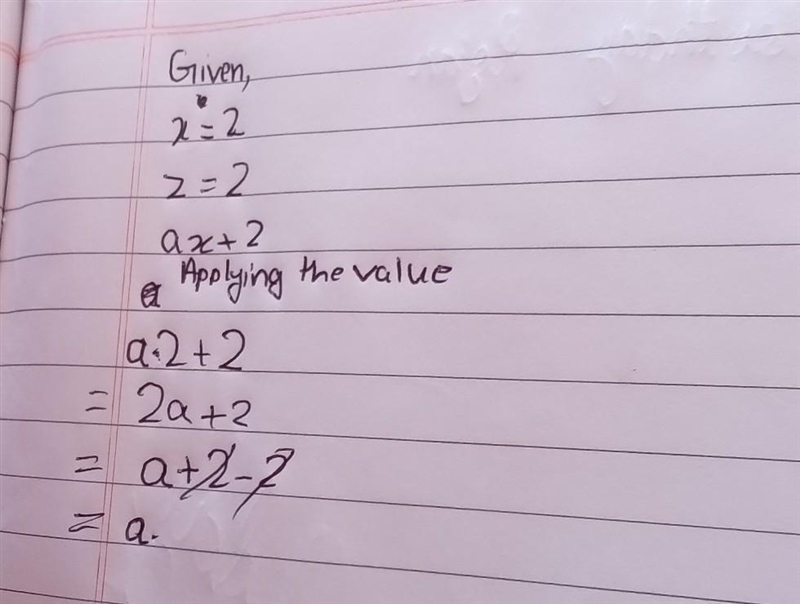 Given,
x = 2
z = 2
ax + 2
Applying the value
a·2 + 2
= 2a + 2
= a + 2 - 2
= a.